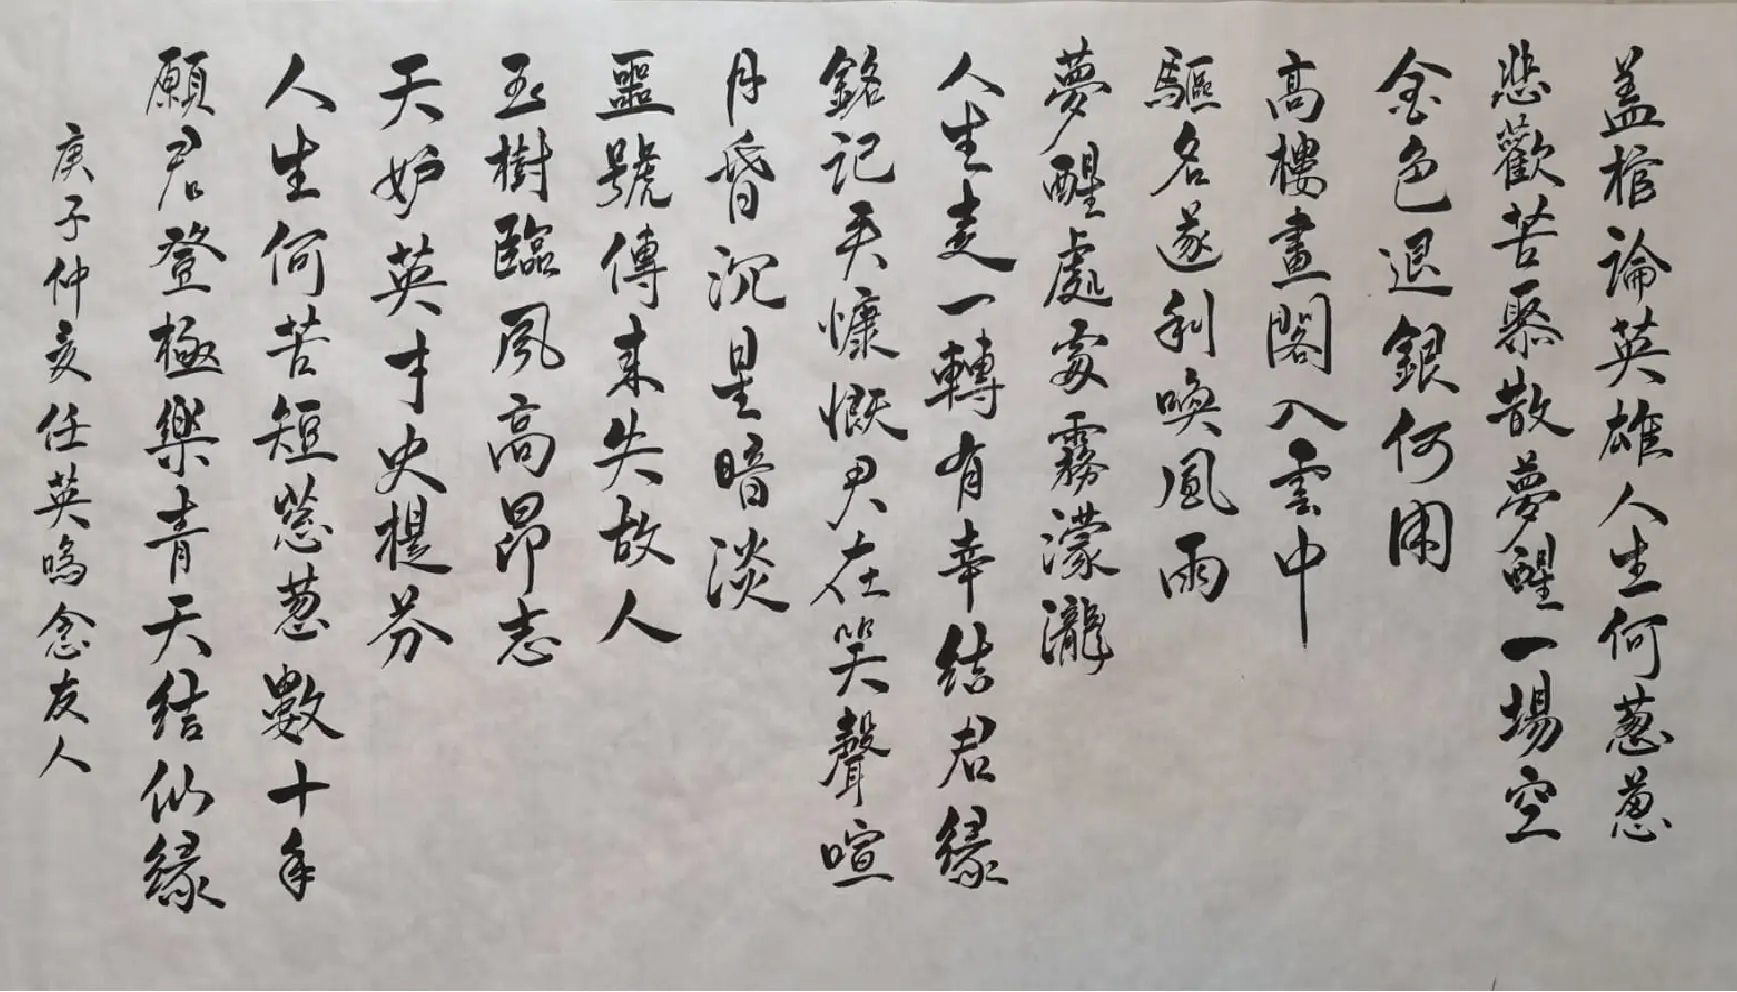 蓋棺論英雄人生何蔥蔥
悲歡苦聚散夢醒一場空
金色退銀何用
高樓畫閣入雲中
驅名遂利喚風雨
夢醒處處霧濛瀧
人生走一轉有幸結君緣
銘記天慷慨尹在笑聲喧
月昏沉星暗淡
噩號傳來失故人
玉樹臨風高昂志
天妒英才史提芬
人生何苦短蔥蔥數十年
願君登極樂青天結仙緣
庚子仲亥任英鳴念友人